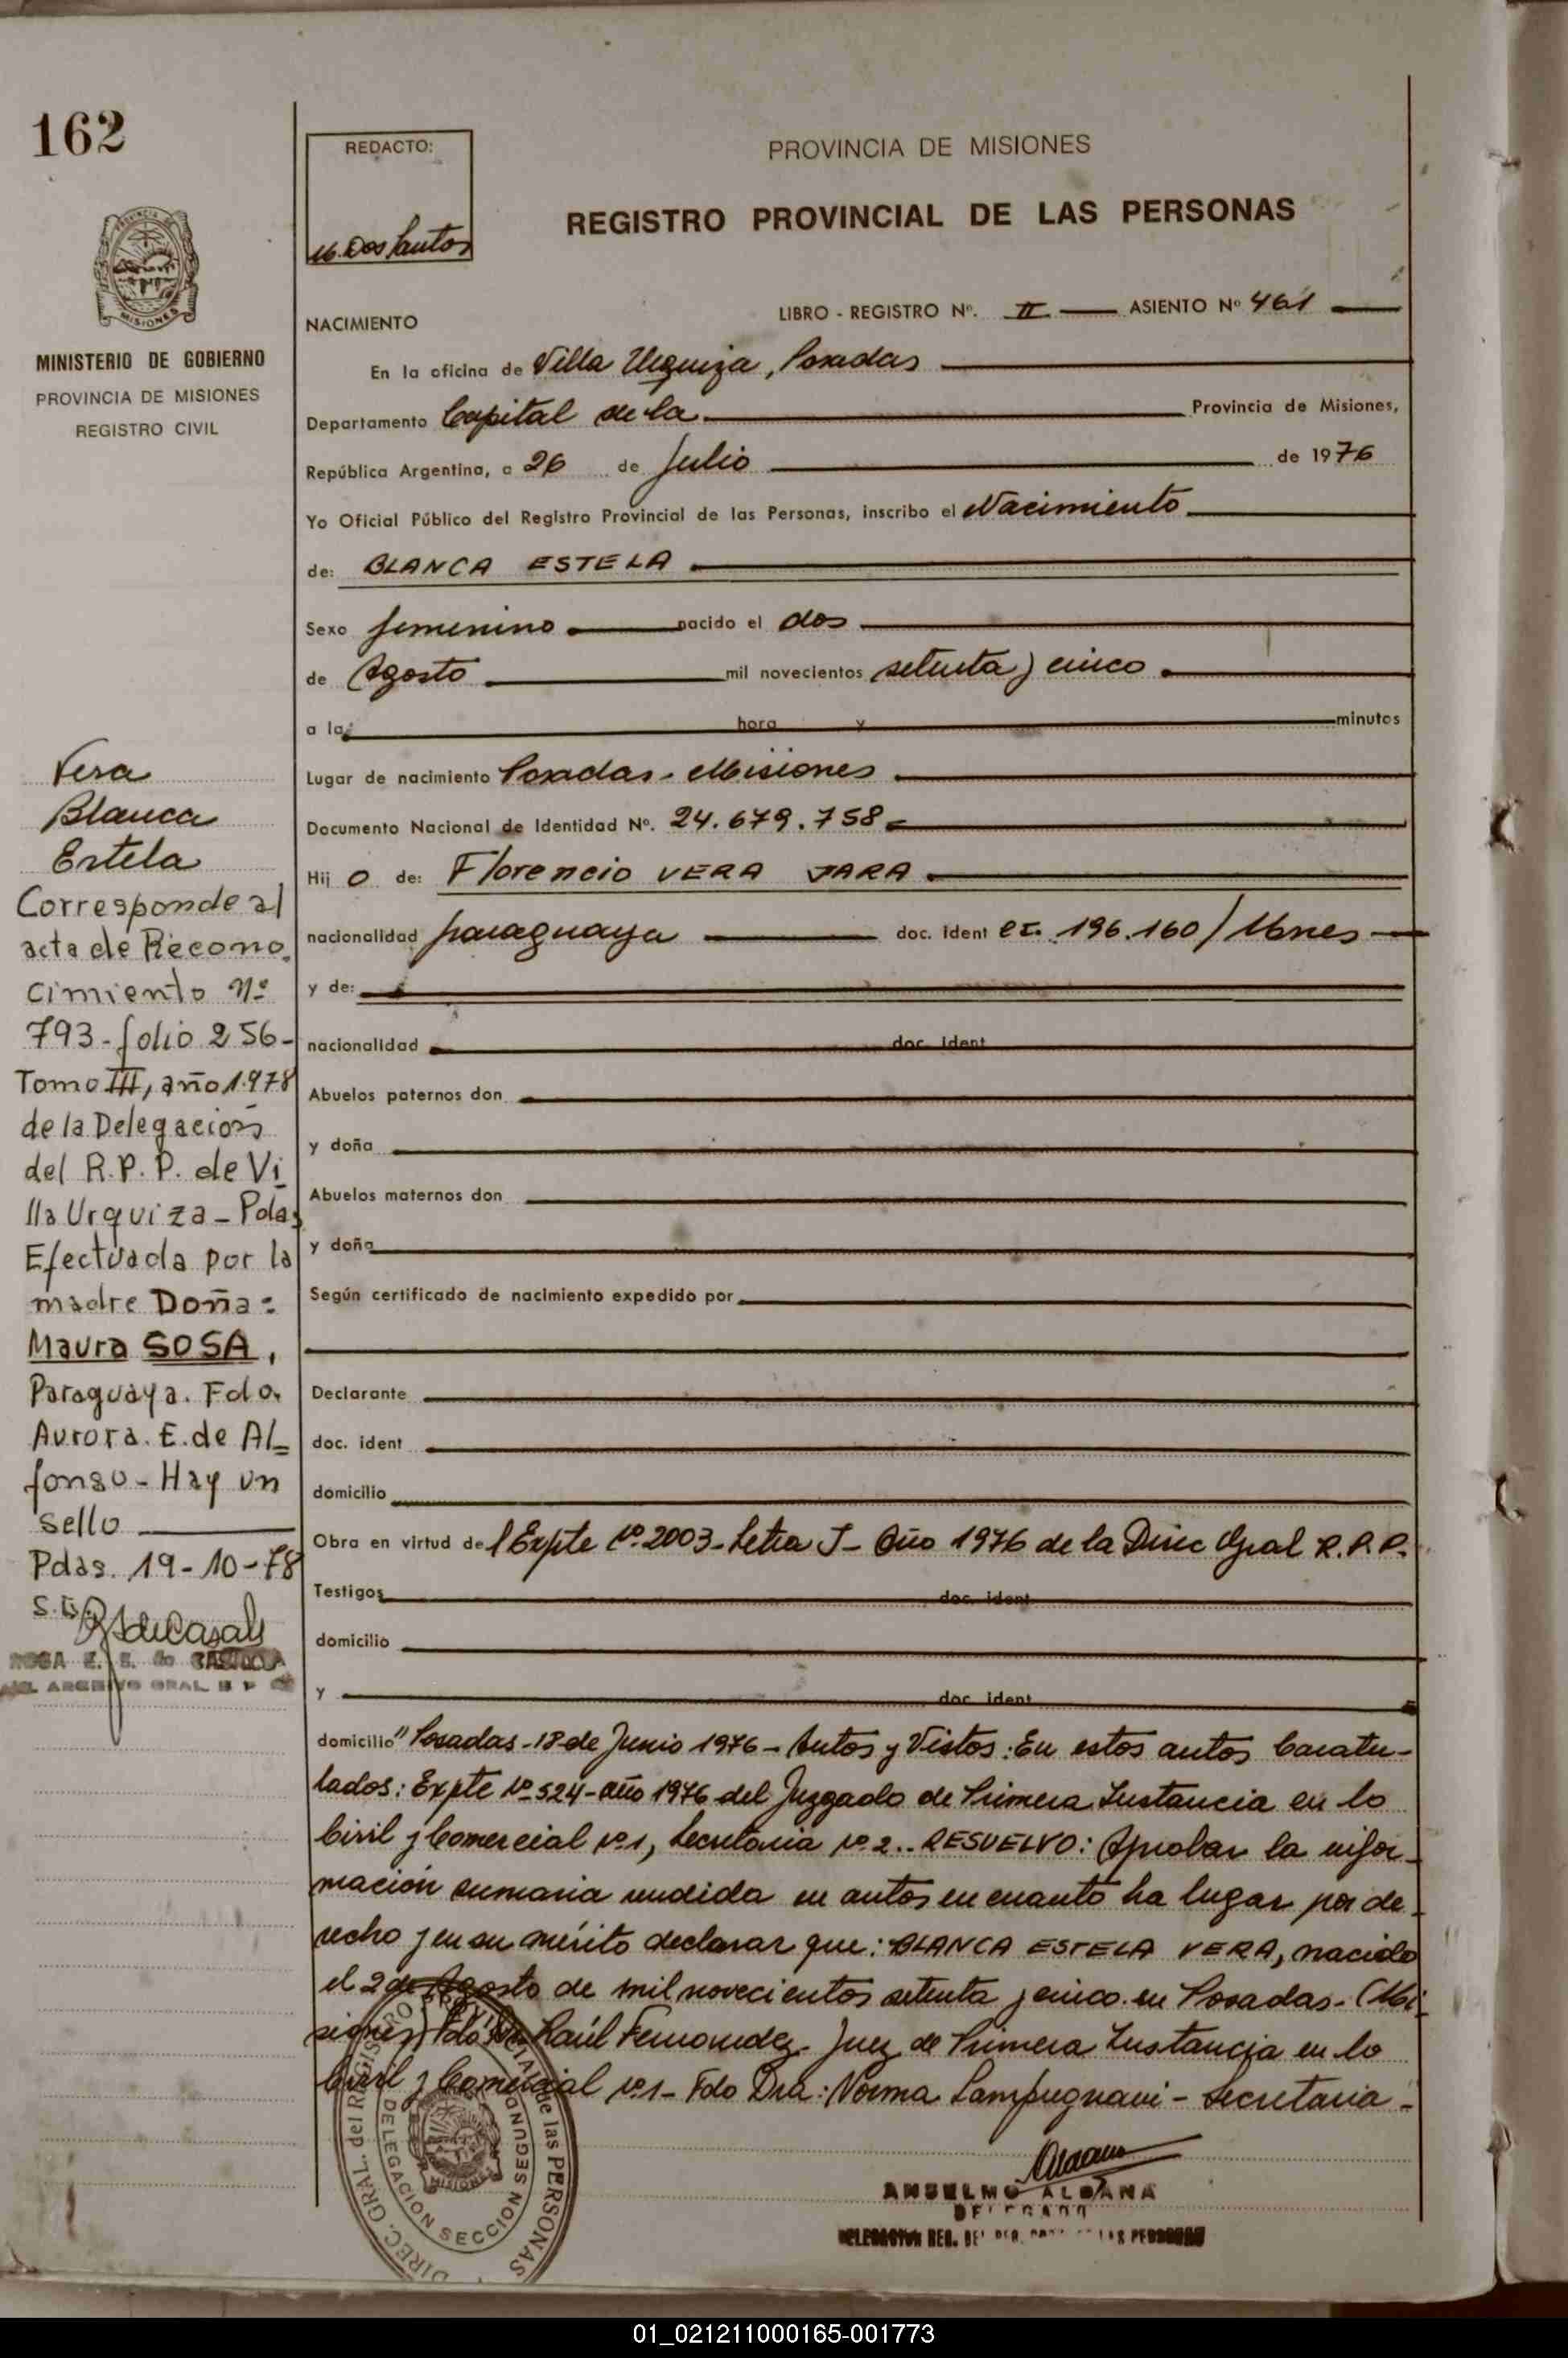 162
PROVINCIA DE MISIONES
MINISTERIO DE GOBIERNO
PROVINCIA DE MISIONES
REGISTRO CIVIL
Vera
Blanca
Estela
Corresponde al
acta de Recono
cimiento Nº
793 - folio 256 -
Tomo III, año 1.978
de la Delegación
del R.P.P. de Vi
lla Urquiza - Pdas
Efectuada por la
madre Doña =
Maura SOSA,
Paraguaya. Fdo.
Aurora. E. de Al=
fonso - Hay un
sello
Pdas. 19-10-78
ROSA E. S. de
REDACTO:
M. Dos Santos
PROVINCIA DE MISIONES
REGISTRO PROVINCIAL DE LAS PERSONAS
LIBRO - REGISTRO Nº. II ASIENTO Nº 461
NACIMIENTO
En la oficina de Villa Urquiza, Posadas
Departamento Capital de la Provincia de Misiones,
República Argentina, a 26 de Julio de 1976
Yo Oficial Público del Registro Provincial de las Personas, inscribo el Nacimiento
de: BLANCA ESTELA
Sexo femenino nacido el dos
de Agosto mil novecientos setenta y cinco
a la: hora y minutos
Lugar de nacimiento Posadas - Misiones
Documento Nacional de Identidad Nº. 24.679.758
Hij o de: Florencio VERA JARA
nacionalidad paraguaya doc. ident CI. 196.160/Mnes
y de:
nacionalidad doc. ident
Abuelos paternos don
y doña
Abuelos maternos don
y doña
Según certificado de nacimiento expedido por
Declarante
doc. ident
domicilio
Obra en virtud del Expte Nº. 2003 - Letra J - Año 1976 de la Direc Gral R.P.P.
Testigos doc. ident
domicilio
y doc. ident
domicilio "Posadas - 18 de Junio 1976 - Autos y Vistos: En estos autos Caratu-
lados: Expte Nº 524 - año 1976 del Juzgado de Primera Instancia en lo
Civil y Comercial Nº 1, Secretaria Nº 2.. RESUELVO: Aprobar la infor-
mación sumaria rendida en autos en cuanto ha lugar por de-
recho y en su mérito declarar que: BLANCA ESTELA VERA, nacido
el 2 de Agosto de mil novecientos setenta y cinco en Posadas - (Mi-
siones) Fdo Dr. Raúl Fernandez - Juez de Primera Instancia en lo
Civil y Comercial Nº 1 - Fdo Dra: Norma Lampugnani - Secretaria -
DIREC. GRAL. del REGISTRO PROVINCIAL de las PERSONAS
DELEGACION SECCION SEGUNDA
MISIONES
ANSELMO ALDANA
DELEGADO
01_021211000165-001773